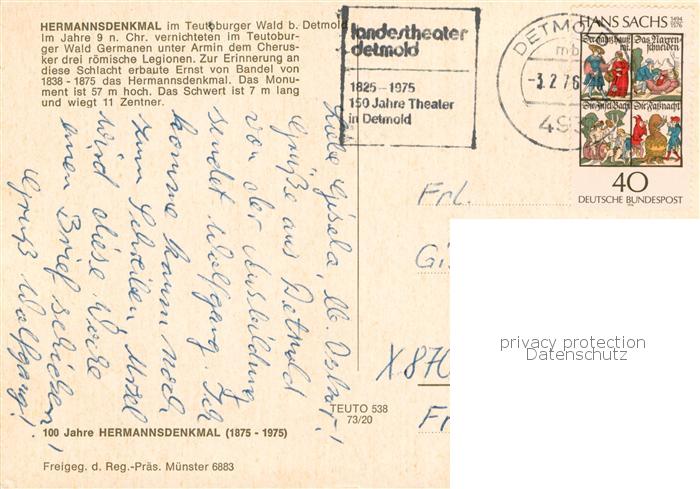 HERMANNSDENKMAL im Teutoburger Wald b. Detmold
Im Jahre 9 n. Chr. vernichteten im Teutobur-
ger Wald Germanen unter Armin dem Cherus-
ker drei römische Legionen. Zur Erinnerung an
diese Schlacht erbaute Ernst von Bandel von
1838 - 1875 das Hermannsdenkmal. Das Monu-
ment ist 57 m hoch. Das Schwert ist 7 m lang
und wiegt 11 Zentner.
landestheater
detmold
1825 – 1975
150 Jahre Theater
in Detmold
DETMO
-3.2.76
493
HANS SACHS 1494 1576
40
DEUTSCHE BUNDESPOST
Liebe Gisela, lb.
Grüße aus Detmold
von der Ausbildung
sendet Wolfgang. Ich
komme kaum noch
zum Schreiben,
wird diese Woche
einen Brief schicken!
Gruß Wolfgang!
Frl.
Gi
X870
Fr
TEUTO 538
73/20
100 Jahre HERMANNSDENKMAL (1875 - 1975)
Freigeg. d. Reg.-Präs. Münster 6883
privacy protection
Datenschutz